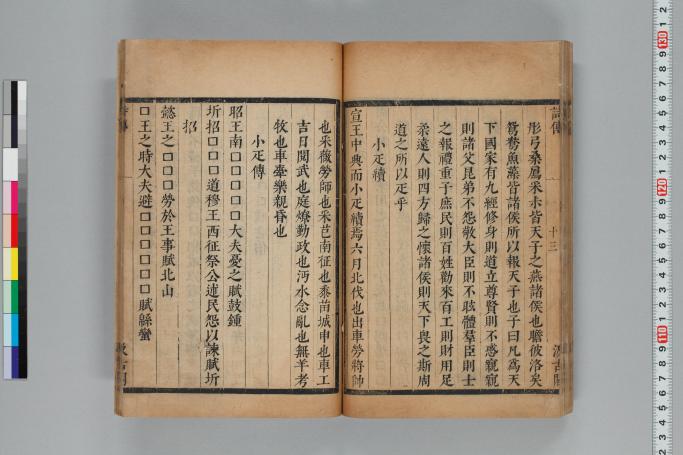 彤弓桑扈采朩皆天子之燕諸侯也瞻彼洛矣
鴛鴦魚藻皆諸侯所以報天子也子曰凡為天
下國家有九經修身則道立尊賢則不惑親親
則諸父昆弟不怨敬大臣則不眩體羣臣則士
之報禮重子庶民則百姓勸來百工則財用足
柔遠人則四方歸之懷諸侯則天下畏之斯周
道之所以疋乎
小疋續
宣王中興而小疋續焉六月北伐也出車勞將帥
也采薇勞師也采芑南征也黍苗城申也車工
吉日閱武也庭燎勤政也沔水念亂也無羊考
牧也車舝樂親昏也
小疋傳
昭王南□□□□□大夫憂之賦鼓鍾
圻招□□□道穆王西征祭公述民怨以諫賦圻
招
懿王之□□□勞於王事賦北山
□王之時大夫避□□□□□□賦緜蠻
詩傳
十三
汲古閣